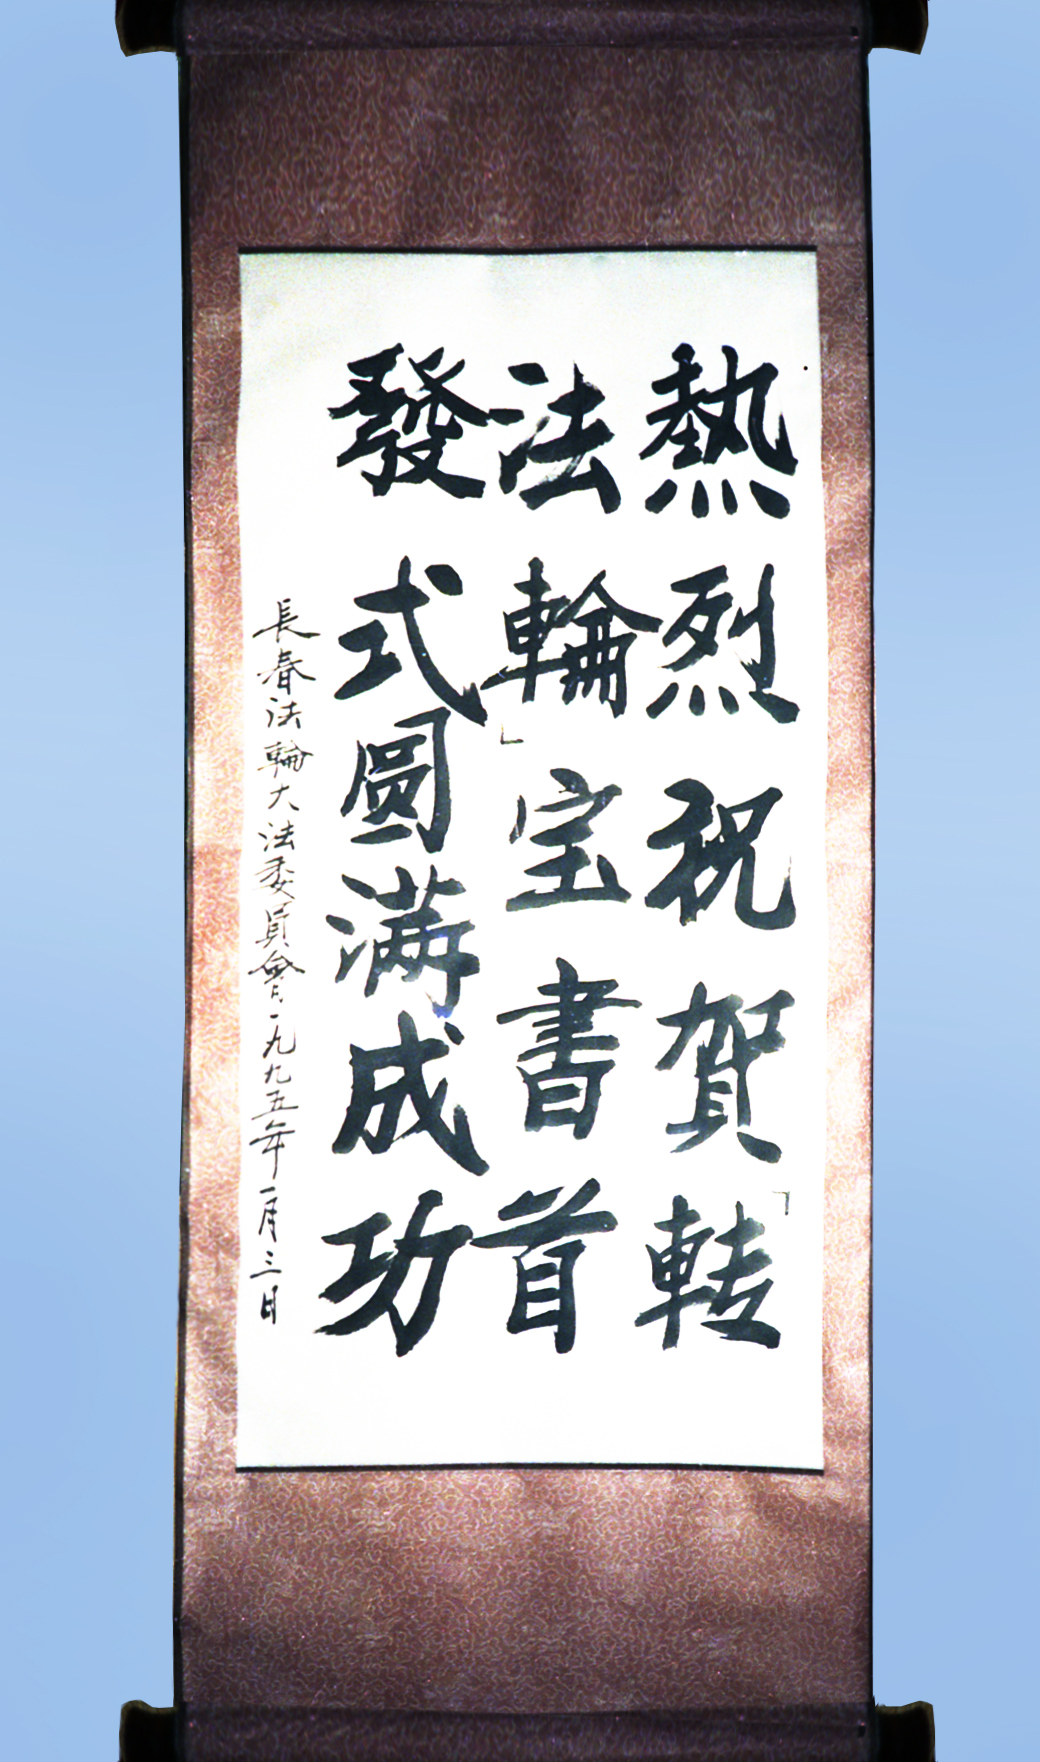 熱烈祝賀「转
法輪」宝書首
發式圓满成功
長春法輪大法委員會一九九五年一月三日